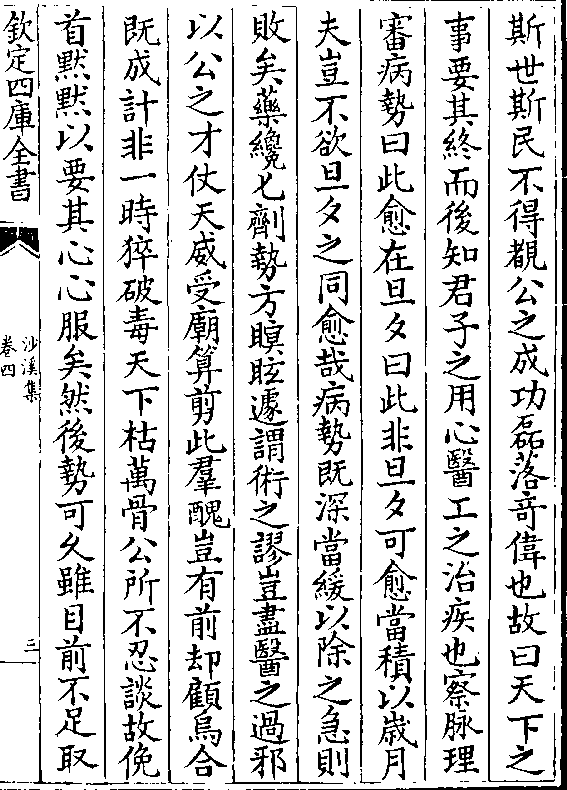 斯世斯民不得覩公之成功磊落竒偉也故曰天下之
事要其終而後知君子之用心醫工之治疾也察脉理
審病勢曰此愈在旦夕曰此非旦夕可愈當積以歳月
夫豈不欲旦夕之同愈哉病勢既深當緩以除之急則
敗矣藥纔七劑勢方瞑眩遽謂術之謬豈盡醫之過邪
以公之才仗天威受廟算剪此羣醜豈有前却顧烏合
既成計非一時猝破毒天下枯萬骨公所不忍談故俛
首黙黙以要其心心服矣然後勢可久雖目前不足取
欽定四庫全書
沙溪集
卷四
三